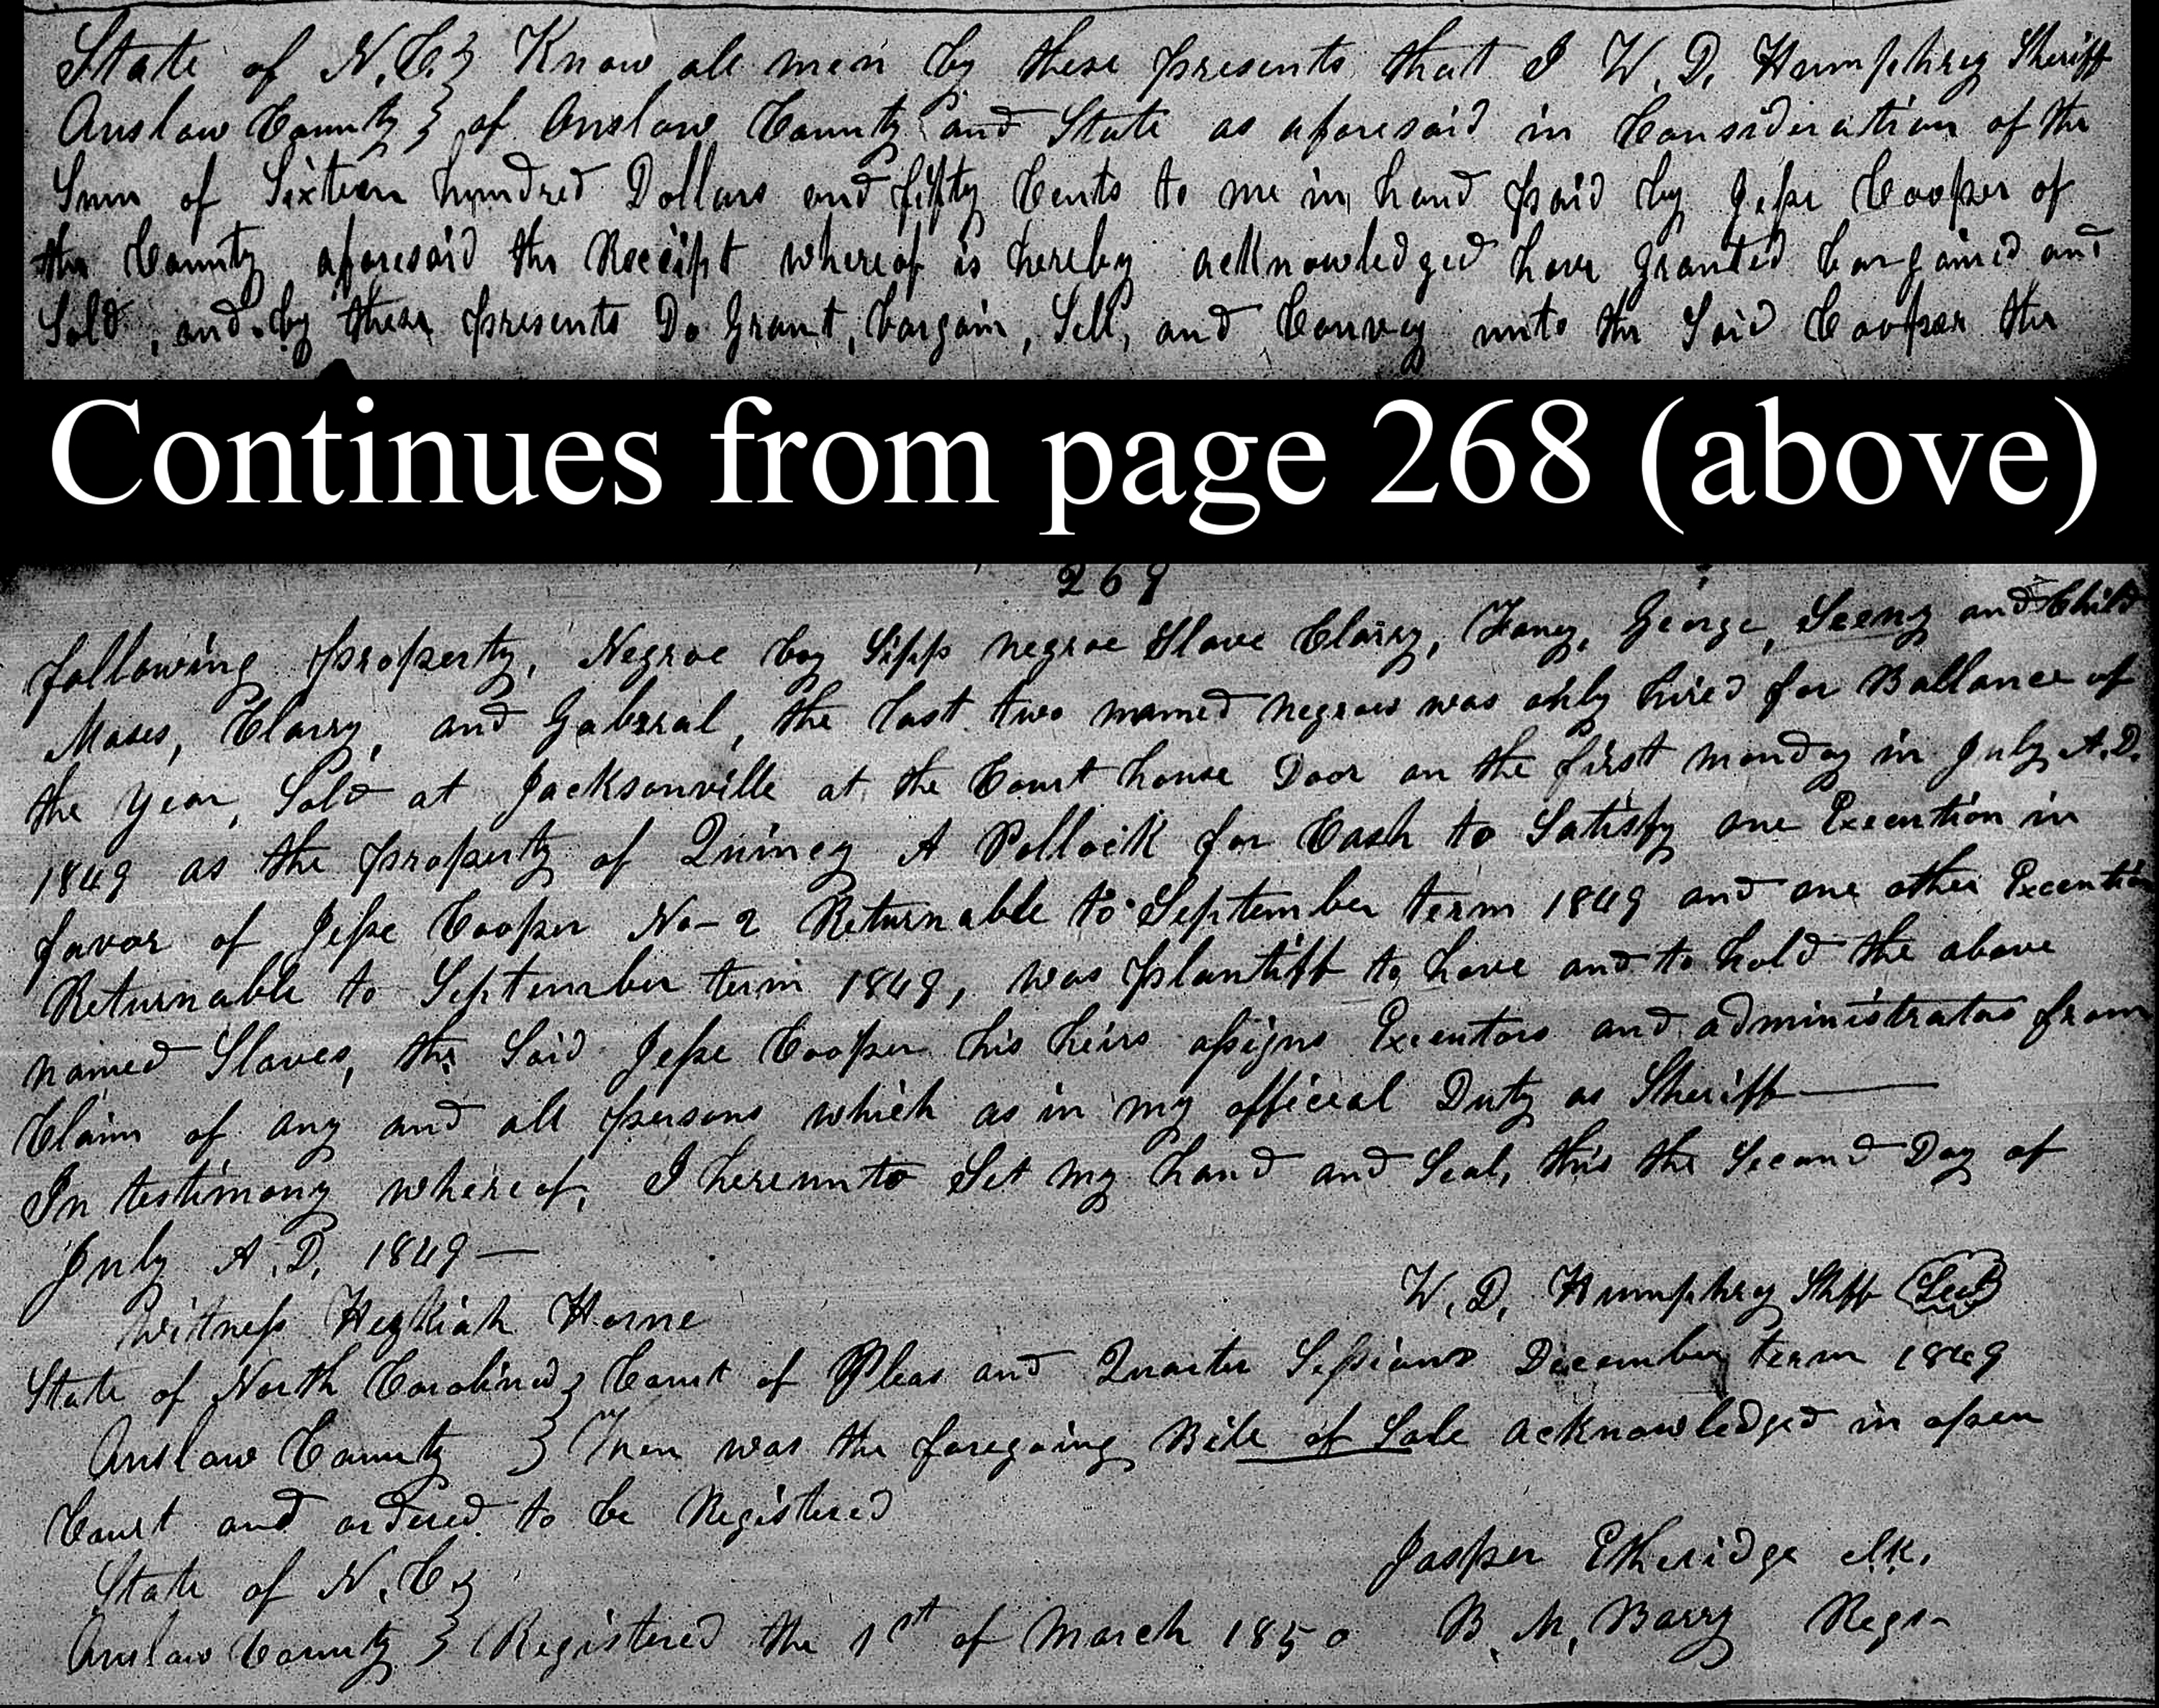 State of N.C.} Know all men by these presents that I W. D. Humphrey Sheriff
Onslow County } of Onslow County and State as aforesaid in Consideration of the
Sum of Sixteen hundred Dollars and fifty Cents to me in hand paid by Jesse Cooper of
the County aforesaid the Receipt whereof is hereby acknowledged have granted bargained and
Sold, and by these presents Do Grant, bargain, Sell, and Convey unto the Said Cooper the
Continues from page 268 (above)
269
following property, Negroe boy Sipp negroe Slave Clarry, Fany, George, Seeny and Child
Moses, Clarry, and Gabrral, the last two named negroes was only hired for Ballance of
the year, Sold at Jacksonville at the Court house Door on the first monday in July A.D.
1849 as the property of Quincy A Pollock for Cash to Satisfy one Execution in
favor of Jesse Cooper No-2 Returnable to September term 1849 and one other Execution
Returnable to September term 1849, was plantiff to have and to hold the above
named Slaves, the Said Jesse Cooper his heirs assigns Executors and administrators from
Claim of any and all persons which as in my official Duty as Sheriff
In testimony whereof, I hereunto Set my hand and Seal, this the Second Day of
July A.D. 1849
W. D. Humphrey Shff Seal
Witness Hezkiah Horne
State of North Carolina } Court of Pleas and Quarter Sessions December term 1849
Onslow County } Then was the foregoing Bill of Sale acknowledged in open
Court and ordered to be Registered
Jasper Etheridge clk.
State of N.C.}
Onslow County } Registered the 1st of March 1850 B. M. Barry Regr